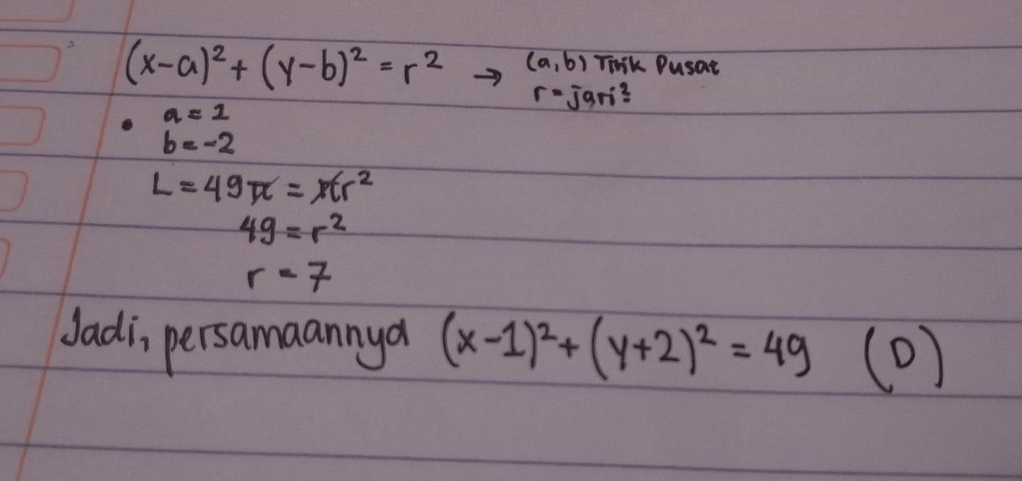 (x-a)² + (y-b)² = r² → (a,b) Titik Pusat
r = jari²
• a = 1
b = -2
L = 49π = πr²
49 = r²
r = 7
Jadi, persamaannya (x-1)² + (y+2)² = 49 (D)